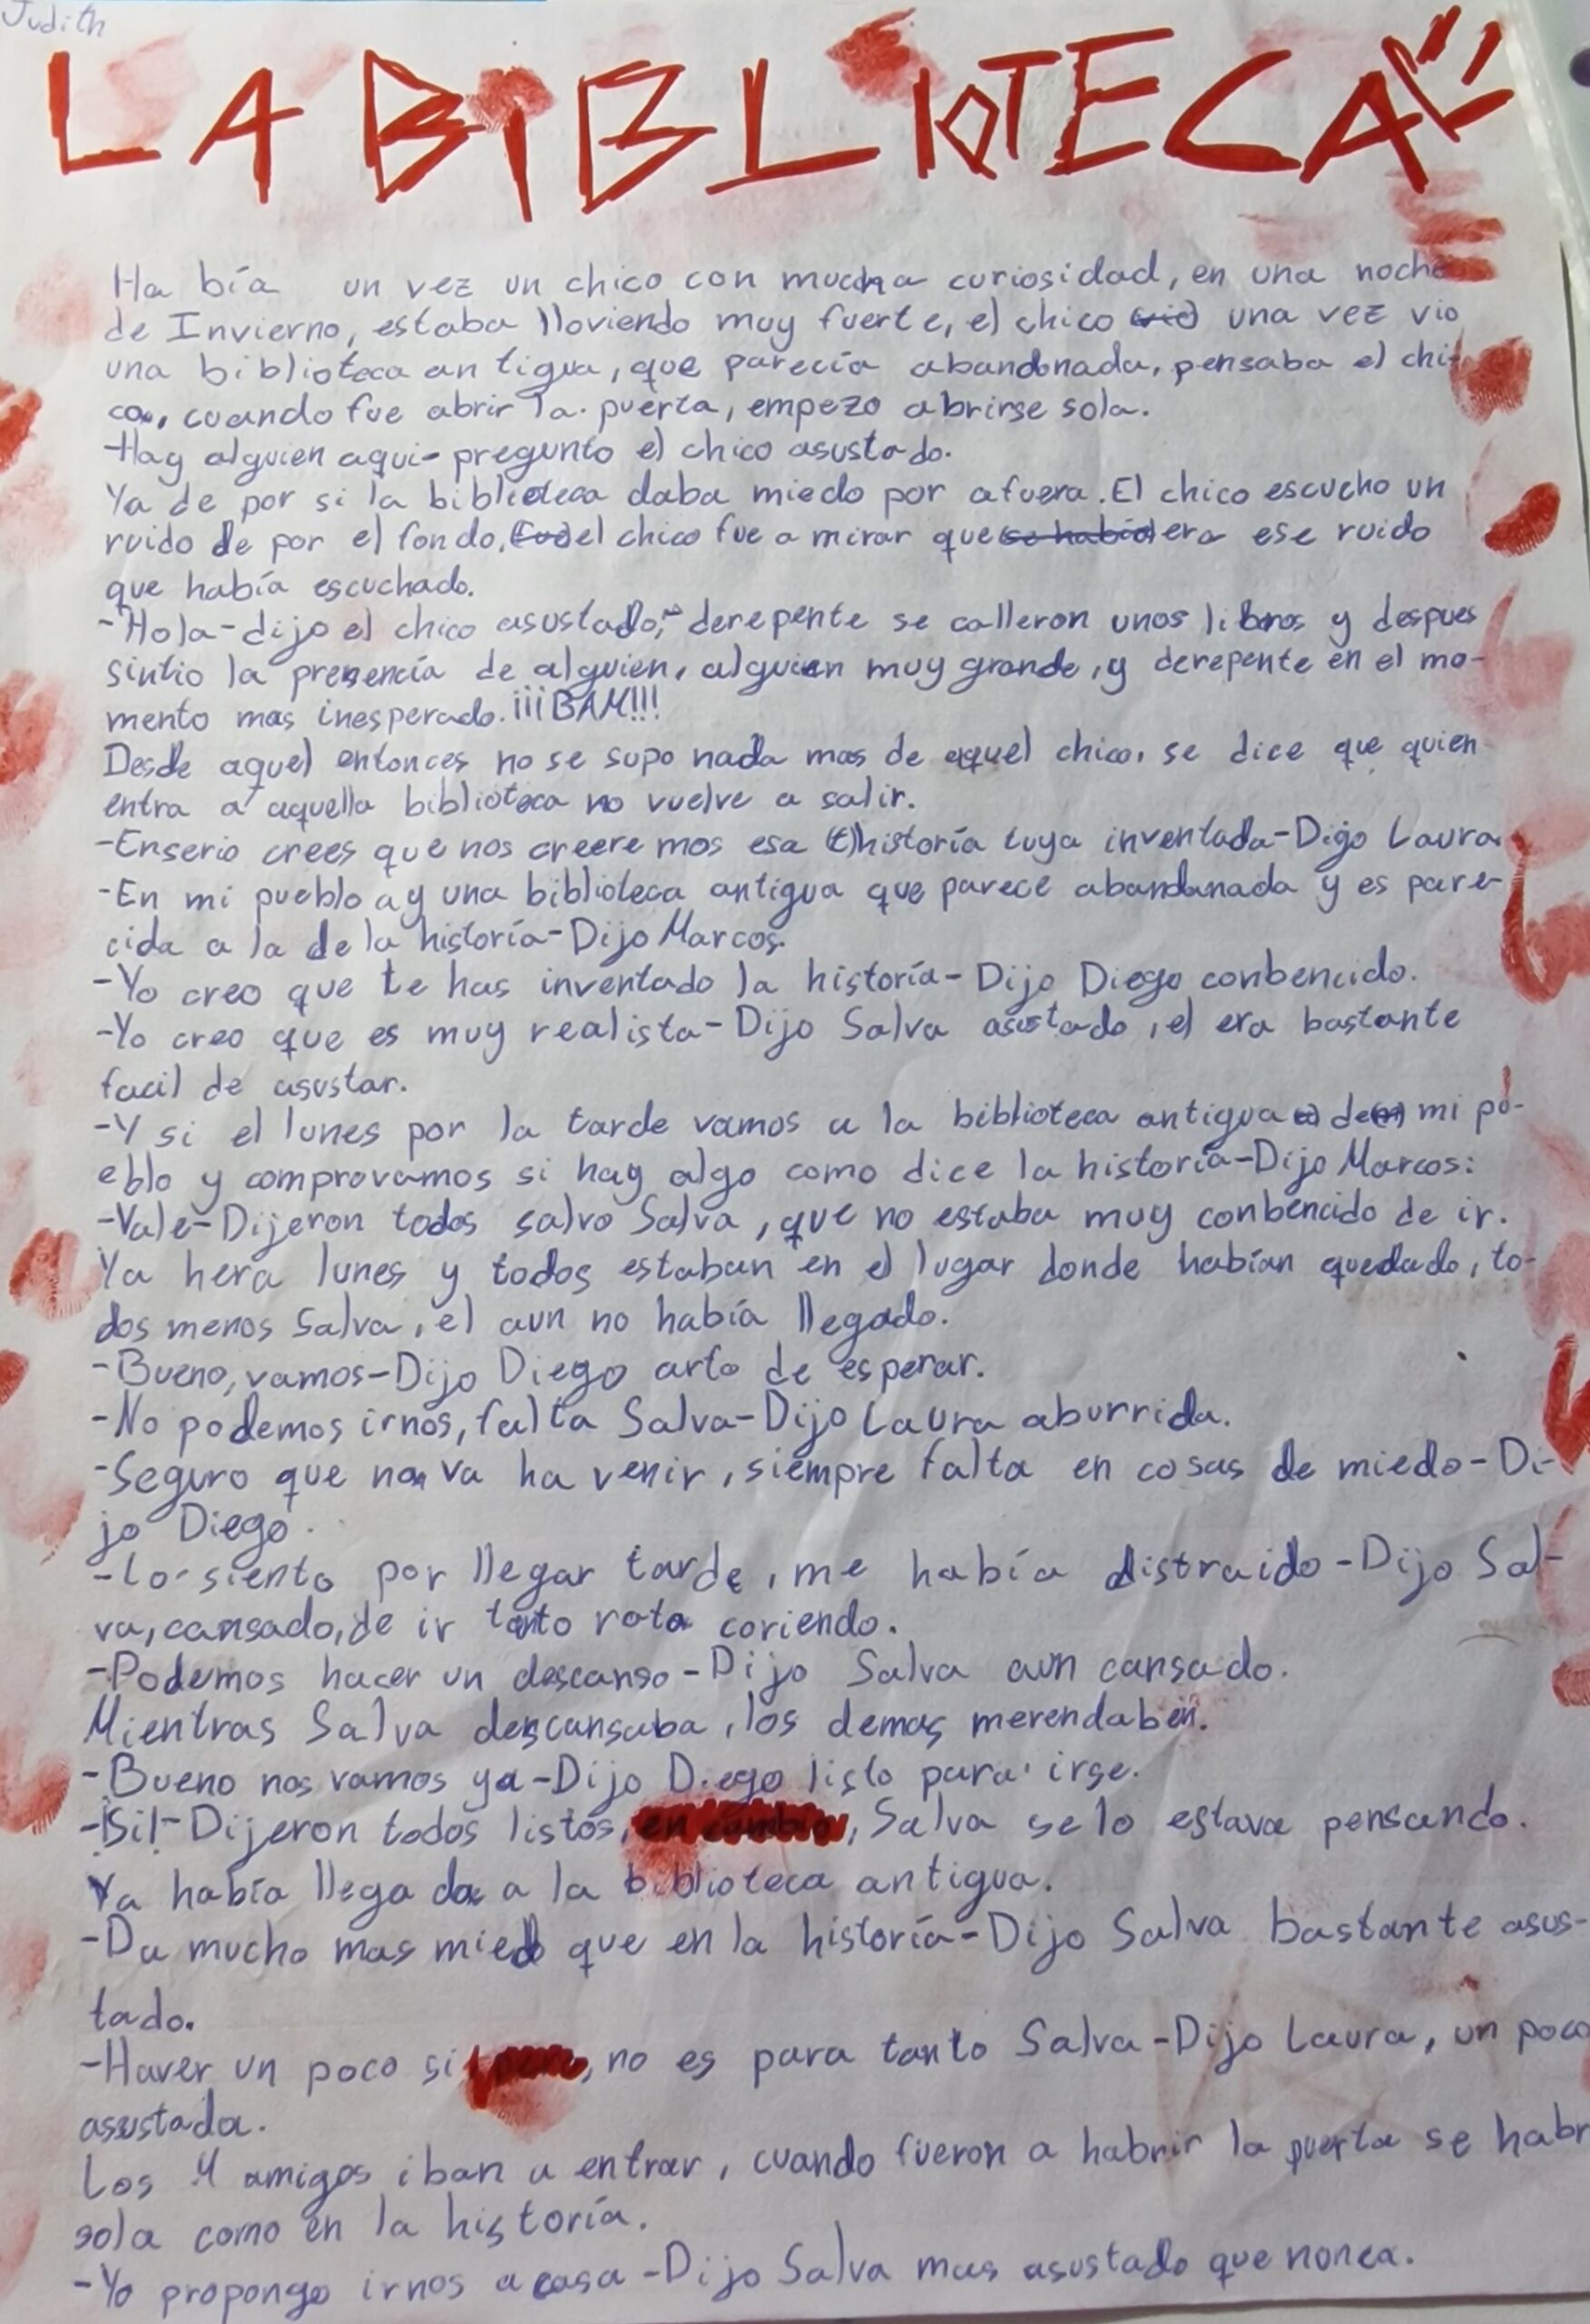 Judith
LA BIBLIOTECA
Había un vez un chico con mucha curiosidad, en una noche
de Invierno, estaba lloviendo muy fuerte, el chico vio una vez vio
una biblioteca antigua, que parecía abandonada, pensaba el chi-
co, cuando fue abrir la puerta, empezo abrirse sola.
-Hay alguien aqui- pregunto el chico asustado.
Ya de por si la biblioteca daba miedo por afuera. El chico escucho un
ruido de por el fondo, fue el chico fue a mirar que se había era ese ruido
que había escuchado.
-Hola-dijo el chico asustado,- derepente se calleron unos libros y despues
sintio la presencía de alguien, alguien muy grande, y derepente en el mo-
mento mas inesperado. ¡¡¡BAM!!!
Desde aquel entonces no se supo nada mas de aquel chico, se dice que quien
entra a aquella biblioteca no vuelve a salir.
-Enserio crees que nos creeremos esa (t)historía tuya inventada-Dijo Laura
-En mi pueblo ay una biblioteca antigua que parece abandanada y es pare-
cida a la de la historía-Dijo Marcos.
-Yo creo que te has inventado la historía-Dijo Diego conbencido.
-Yo creo que es muy realista-Dijo Salva asustado, el era bastante
facil de asustar.
-Y si el lunes por la tarde vamos a la biblioteca antigua de mi pu-
eblo y comprovamos si hay algo como dice la historia-Dijo Marcos:
-Vale-Dijeron todos salvo Salva, que no estaba muy conbencido de ir.
Ya hera lunes y todos estaban en el lugar donde habían quedado, to-
dos menos Salva, el aun no había llegado.
-Bueno, vamos-Dijo Diego arto de esperar.
-No podemos irnos, falta Salva-Dijo Laura aburrida.
-Seguro que no va ha venir, siempre falta en cosas de miedo-Di-
jo Diego.
-Lo siento por llegar tarde, me había distraido-Dijo Sal-
va, cansado, de ir tanto rato coriendo.
-Podemos hacer un descanso-Dijo Salva aun cansado.
Mientras Salva descansaba, los demas merendaben.
-Bueno nos vamos ya-Dijo Diego listo para irse.
-¡Si!-Dijeron todos listos, en cambio, Salva se lo estava pensando.
Ya había llegado a la biblioteca antigua.
-Da mucho mas miedo que en la historía-Dijo Salva bastante asus-
tado.
-Haver un poco si pero, no es para tanto Salva-Dijo Laura, un poco
asustada.
Los 4 amigos iban a entrar, cuando fueron a habrir la puerta se habr
sola como en la historía.
-Yo propongo irnos a casa-Dijo Salva mas asustado que nonca.